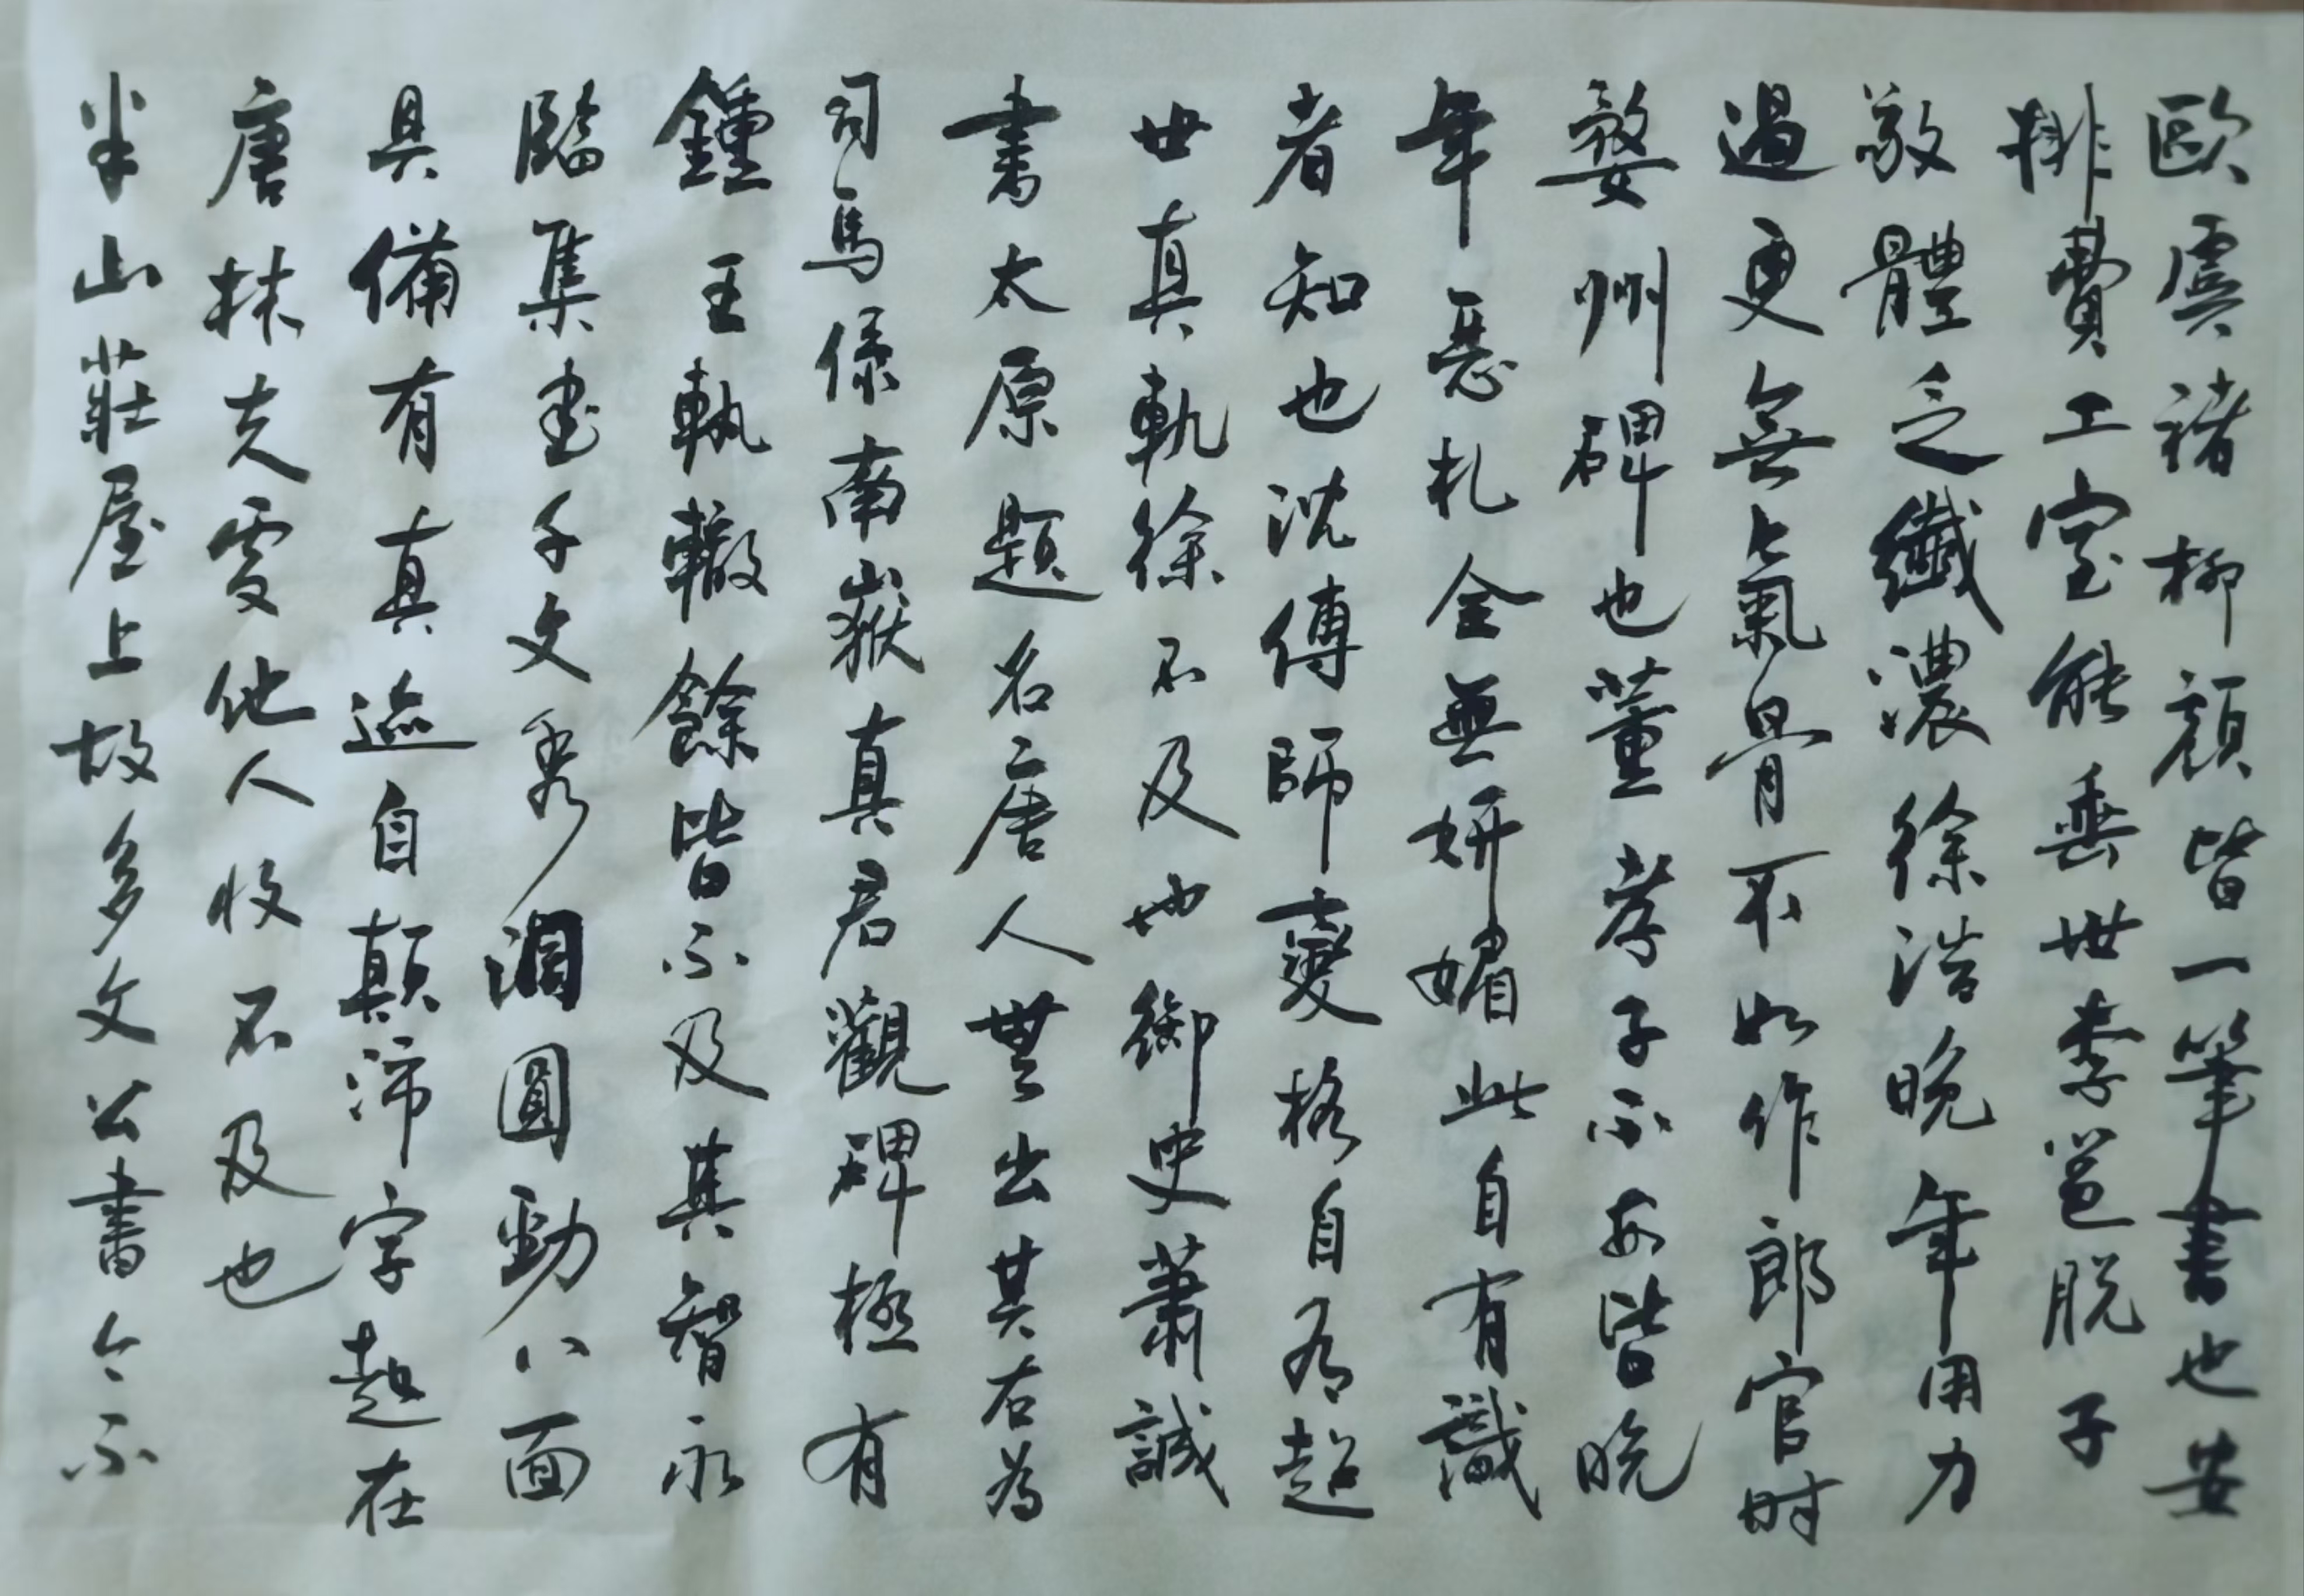 歐虞褚柳顔皆一筆書也安
排費工室能垂世李邕脱子
敬體乏纖濃徐浩晚年用力
過更無氣骨不如作郎官時
婺州碑也董孝子不安皆晚
年惡札全無妍媚此自有識
者知也沈傳師變格自有超
世真軌徐不及也御史蕭誠
書太原題名唐人無出其右為
司馬係南嶽真君觀碑極有
鍾王軌轍餘皆不及其智永
臨集書千文秀潤圓勁八面
具備有真迹自顛沛字起在
唐林夫處他人收不及也
半山莊屋上故多文公書今不